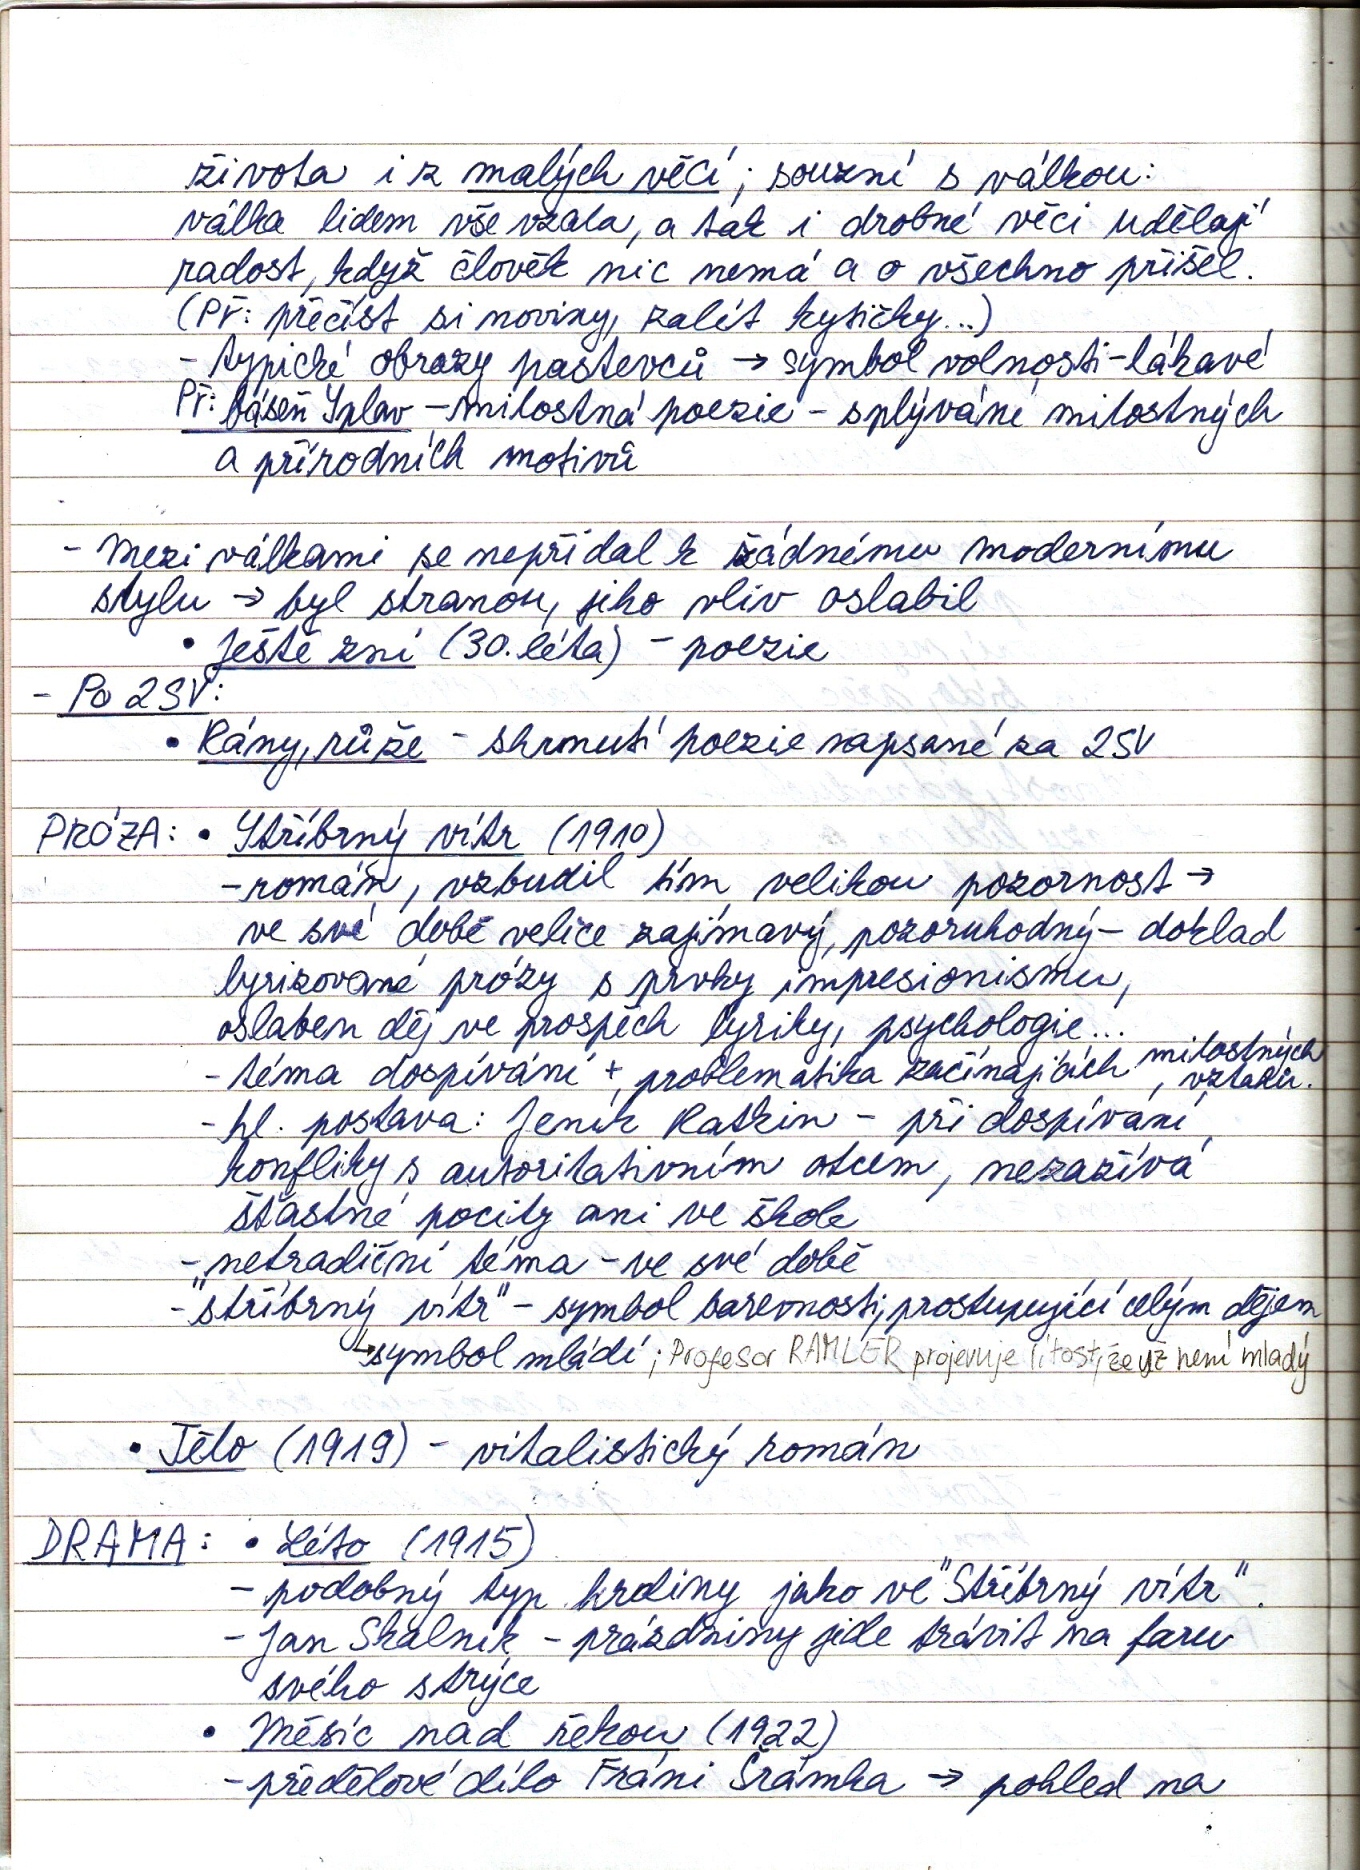 života i z malých věcí; souzní s válkou:
válka lidem vše vzala, a tak i drobné věci udělají
radost, když člověk nic nemá a o všechno přišel.
(Př: přečíst si noviny, zalít kytičky...)
- typické obrazy pastevců → symbol volnosti - lákavé
Př: báseň Splav - milostná poezie - splývání milostných
a přírodních motivů
- Mezi válkami se nepřidal k žádnému modernímu
stylu → byl stranou, jeho vliv oslabil
• Ještě zní (30. léta) - poezie
- Po 2SV:
• Rány, růže - shrnutí poezie napsané za 2SV
PRÓZA: • Stříbrný vítr (1910)
- román, vzbudil tím velikou pozornost →
ve své době velice zajímavý, pozoruhodný - doklad
lyrizované prózy s prvky impresionismu,
oslaben děj ve prospěch lyriky, psychologie...
- téma dospívání +, problematika začínajících milostných
vztahů.
- hl. postava: Jeník Ratkin - při dospívání
konflikty s autoritativním otcem, nezažívá
šťastné pocity ani ve škole
- netradiční téma - ve své době
- "stříbrný vítr" - symbol barevnosti, prostupující celým dějem
↳ symbol mládí; Profesor RAMLER projevuje lítost, že už není mladý
• Tělo (1919) - vitalistický román
DRAMA: • Léto (1915)
- podobný typ hrdiny jako ve "Stříbrný vítr".
- Jan Skalník - prázdniny jede trávit na faru
svého strýce
• Měsíc nad řekou (1922)
- předělové dílo Fráni Šrámka → pohled na